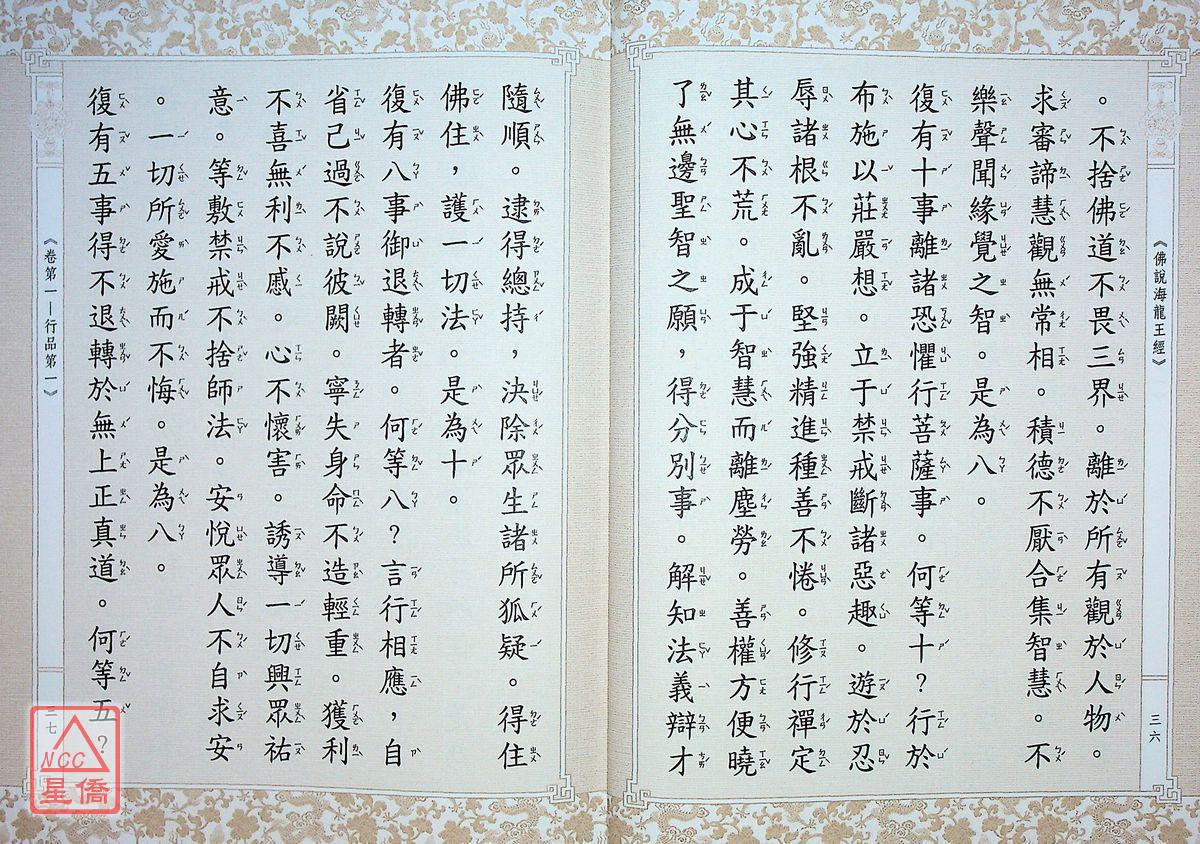 《佛說海龍王經》
三六
。不捨佛道不畏三界。離於所有觀於人物。
求審諦慧觀無常相。積德不厭合集智慧。不
樂聲聞緣覺之智。是為八。
復有十事離諸恐懼行菩薩事。何等十？行於
布施以莊嚴想。立于禁戒斷諸惡趣。遊於忍
辱諸根不亂。堅強精進種善不惓。修行禪定
其心不荒。成于智慧而離塵勞。善權方便曉
了無邊聖智之願，得分別事。解知法義辯才
隨順。逮得總持，決除眾生諸所狐疑。得住
佛住，護一切法。是為十。
復有八事御退轉者。何等八？言行相應，自
省己過不說彼闕。寧失身命不造輕重。獲利
不喜無利不慼。心不懷害。誘導一切興眾祐
意。等敷禁戒不捨師法。安悅眾人不自求安
。一切所愛施而不悔。是為八。
復有五事得不退轉於無上正真道。何等五？
《卷第一—行品第一》
三七
NCC
星僑